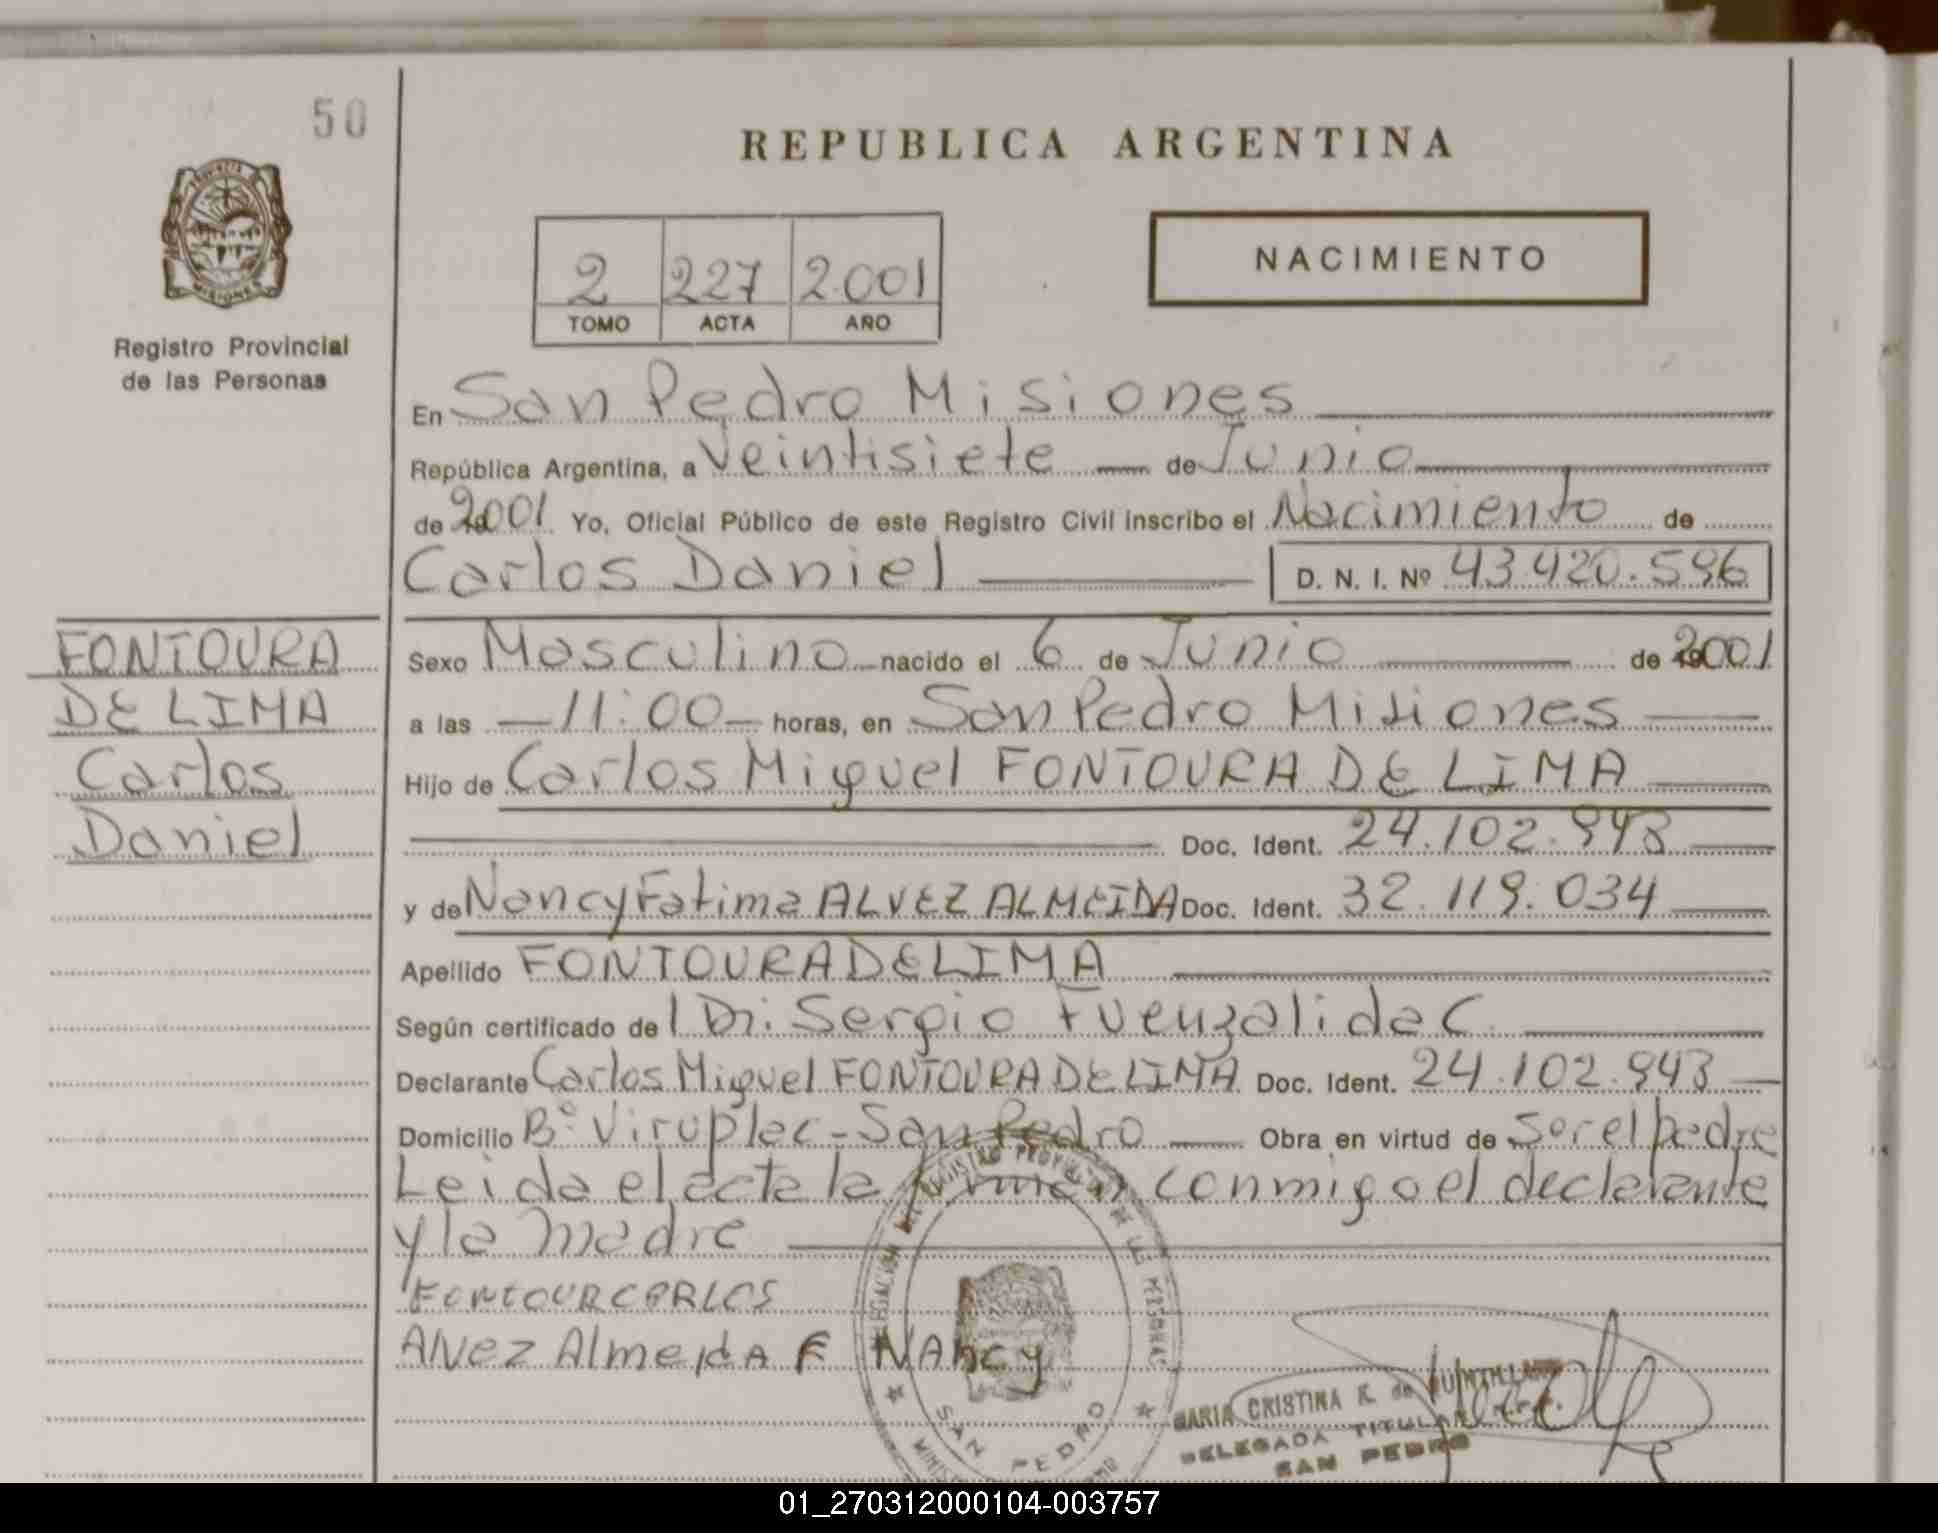 50
REPUBLICA ARGENTINA
PROVINCIA
MISIONES
Registro Provincial
de las Personas
2 227 2.001
TOMO ACTA AÑO
NACIMIENTO
En San Pedro Misiones
República Argentina, a Veintisiete de Junio
de 2001 Yo, Oficial Público de este Registro Civil inscribo el Nacimiento de
Carlos Daniel D. N. I. Nº 43.420.596
FONTOURA
DE LIMA
Carlos
Daniel
Sexo Masculino nacido el 6 de Junio de 2001
a las 11:00 horas, en San Pedro Misiones
Hijo de Carlos Miguel FONTOURA DE LIMA
Doc. Ident. 24.102.943
y de Nancy Fatima ALVEZ ALMEIDA Doc. Ident. 32.119.034
Apellido FONTOURA DE LIMA
Según certificado de l Dr: Sergio Fuenzalida C
Declarante Carlos Miguel FONTOURA DE LIMA Doc. Ident. 24.102.943
Domicilio Bº Viruplac - San Pedro Obra en virtud de Ser el padre
Leida el acta la firman conmigo el declarante
y la madre
FONTOUR CARLOS
Alvez Almeida F Nancy
DELEGACION DEL REGISTRO PROVINCIAL DE LAS PERSONAS
SAN PEDRO
MARIA CRISTINA K. de QUINTILLAN
DELEGADA TITULAR R.P.P.
SAN PEDRO
01_270312000104-003757